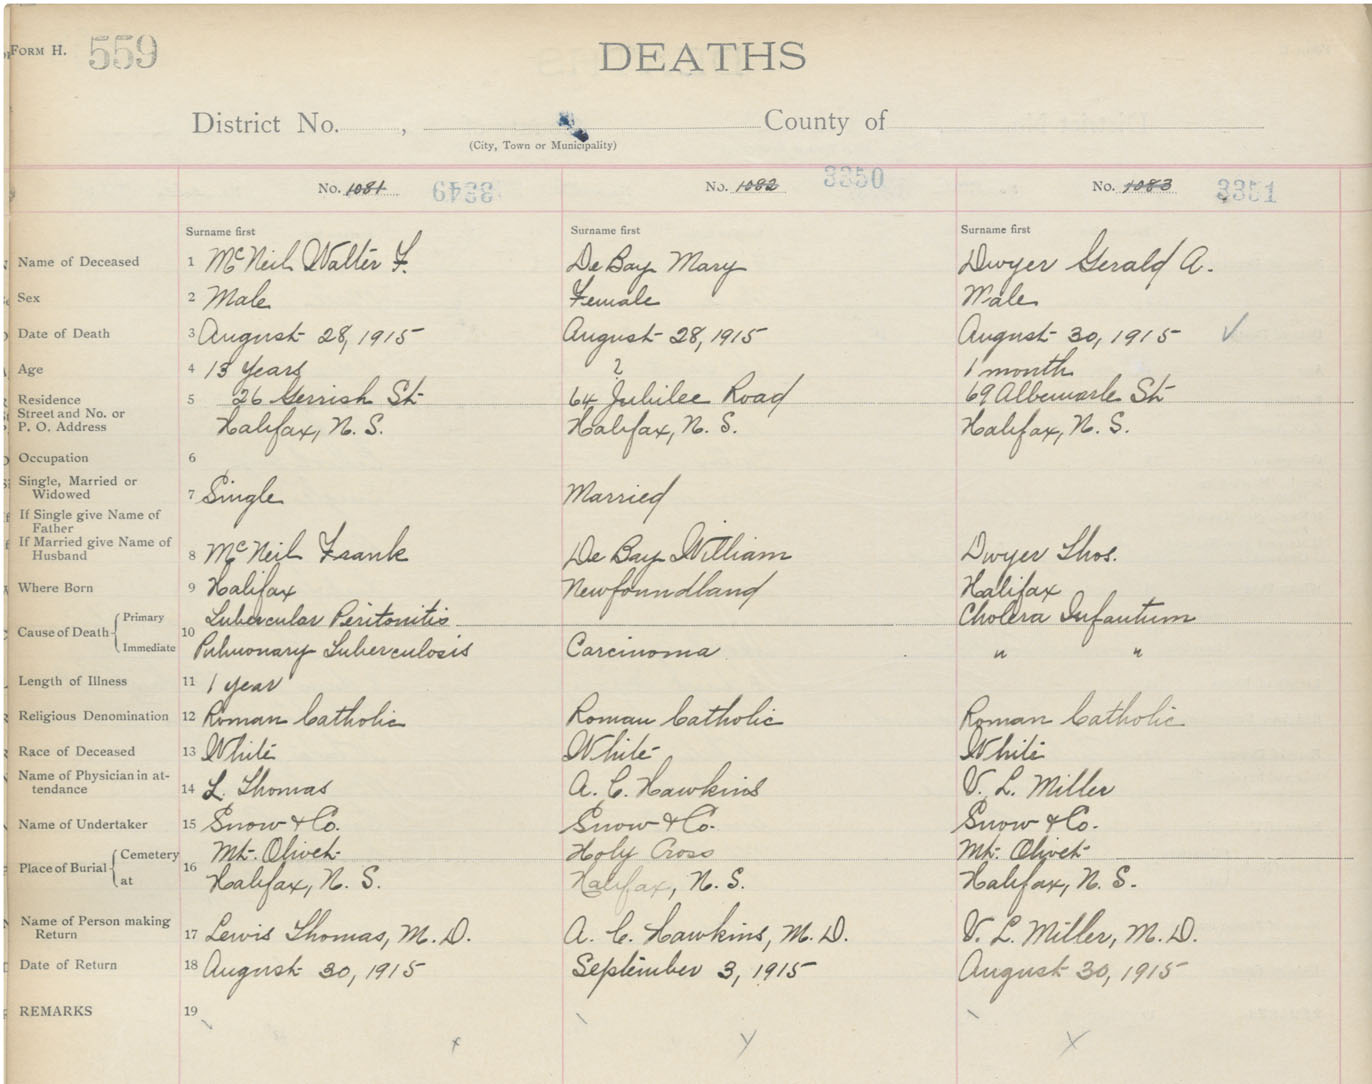 FORM H. 559
DEATHS
District No. , County of
(City, Town or Municipality)
No. 1081 3349 No. 1082 3350 No. 1083 3351
Surname first Surname first Surname first
Name of Deceased 1 McNeil Walter F. De Bay Mary Dwyer Gerald A.
Sex 2 Male Female Male
Date of Death 3 August 28, 1915 August 28, 1915 August 30, 1915 ✓
Age 4 13 years ? 1 month
Residence 5 26 Gerrish St 64 Jubilee Road 69 Albemarle St
Street and No. or
P. O. Address Halifax, N. S. Halifax, N. S. Halifax, N. S.
Occupation 6
Single, Married or
Widowed 7 Single Married
If Single give Name of
Father
If Married give Name of
Husband 8 McNeil Frank De Bay William Dwyer Thos.
Where Born 9 Halifax Newfoundland Halifax
Cause of Death Primary 10 Tubercular Peritonitis Cholera Infantum
Immediate Pulmonary Tuberculosis Carcinoma " "
Length of Illness 11 1 year
Religious Denomination 12 Roman Catholic Roman Catholic Roman Catholic
Race of Deceased 13 White White White
Name of Physician in at-
tendance 14 L. Thomas A. C. Hawkins V. L. Miller
Name of Undertaker 15 Snow & Co. Snow & Co. Snow & Co.
Place of Burial Cemetery 16 Mt. Olivet Holy Cross Mt. Olivet
at Halifax, N. S. Halifax, N. S. Halifax, N. S.
Name of Person making
Return 17 Lewis Thomas, M. D. A. C. Hawkins, M. D. V. L. Miller, M. D.
Date of Return 18 August 30, 1915 September 3, 1915 August 30, 1915
REMARKS 19
x y x